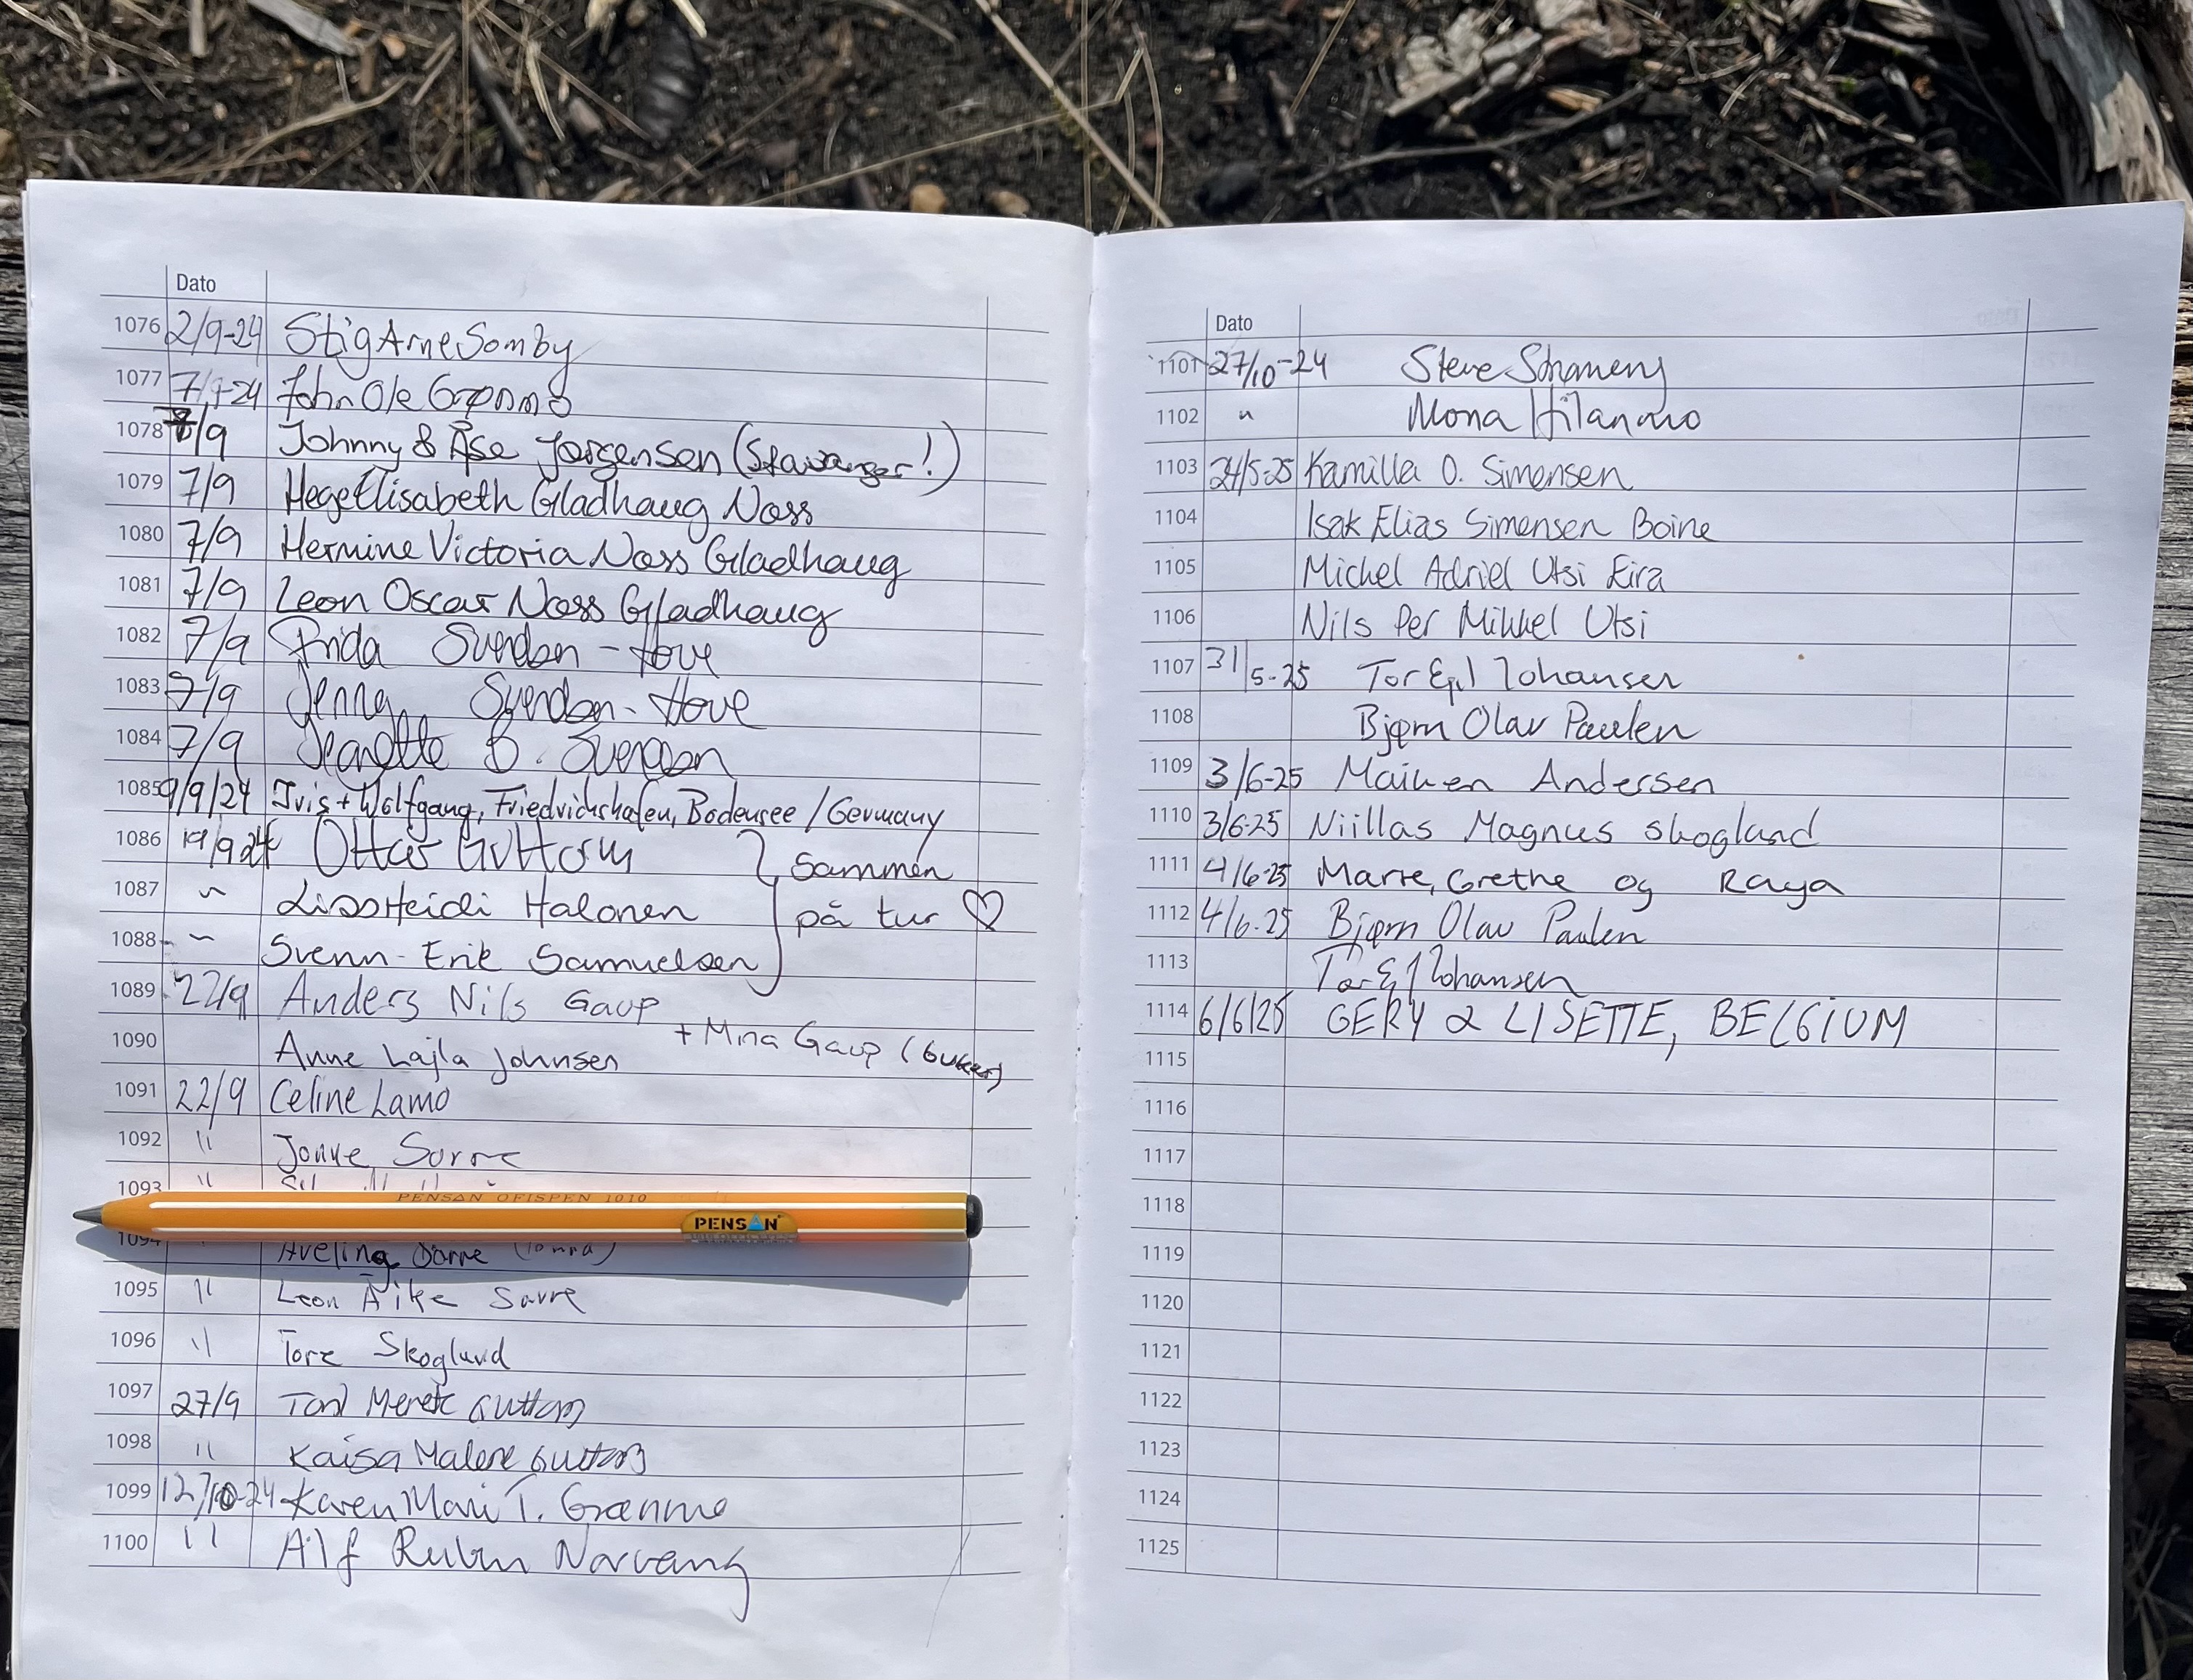 Dato
1076 2/9-24 Stig Arne Somby
1077 7/9-24 John Ole Grønmo
1078 7/9 Johnny & Åse Jørgensen (Stavanger!)
1079 7/9 Hege Elisabeth Gladhaug Næss
1080 7/9 Hermine Victoria Næss Gladhaug
1081 7/9 Leon Oscar Næss Gladhaug
1082 7/9 Frida Svendsen-Hove
1083 7/9 Jenny Svendsen-Hove
1084 7/9 Jeanette B. Svendsen
1085 9/9/24 Iris + Wolfgang, Friedrichshafen, Bodensee / Germany
1086 19/9 24 Ottar Guttorm } sammen
1087 " Liss Heidi Halonen på tur ♡
1088 " Svenn-Erik Samuelsen
1089 22/9 Anders Nils Gaup
1090 Anne Lajla Johnsen + Mina Gaup
1091 22/9 Celine Lamo
1092 " Sarre
1093 "
PENSAN OFISPEN 1010
PENSAN
1094 Avelina Sarre
1095 " Leon Áike Sarre
1096 " Tore Skoglund
1097 27/9 Merete Guttorm
1098 " Kaisa Malene Guttorm
1099 12/10-24 Karen Mari T. Grænmo
1100 " Alf Ruben Norvang
Dato
1101 27/10-24 Steve
1102 " Mona
1103 24/5-25 Kamilla O. Simensen
1104 Isak Elias Simensen Boine
1105 Michel Adriel Utsi Eira
1106 Nils Per Mikkel Utsi
1107 31/5-25 Tor Egil Johansen
1108 Bjørn Olav Paulen
1109 3/6-25 Maiken Andersen
1110 3/6-25 Niillas Magnus Skoglund
1111 4/6-25 Marte, Grethe og Raya
1112 4/6-25 Bjørn Olav Paulen
1113 Tor Egil Johansen
1114 6/6/25 GERY & LISETTE, BELGIUM
1115
1116
1117
1118
1119
1120
1121
1122
1123
1124
1125